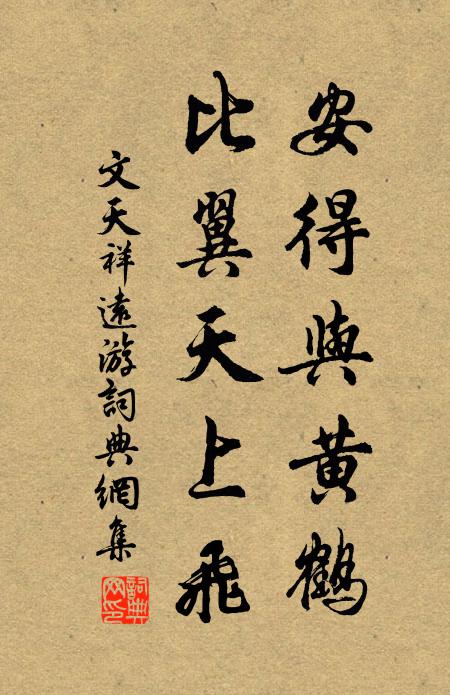 安得與黄鶴
比翼天上飛
文天祥遠游詞典網集
詞典
网印